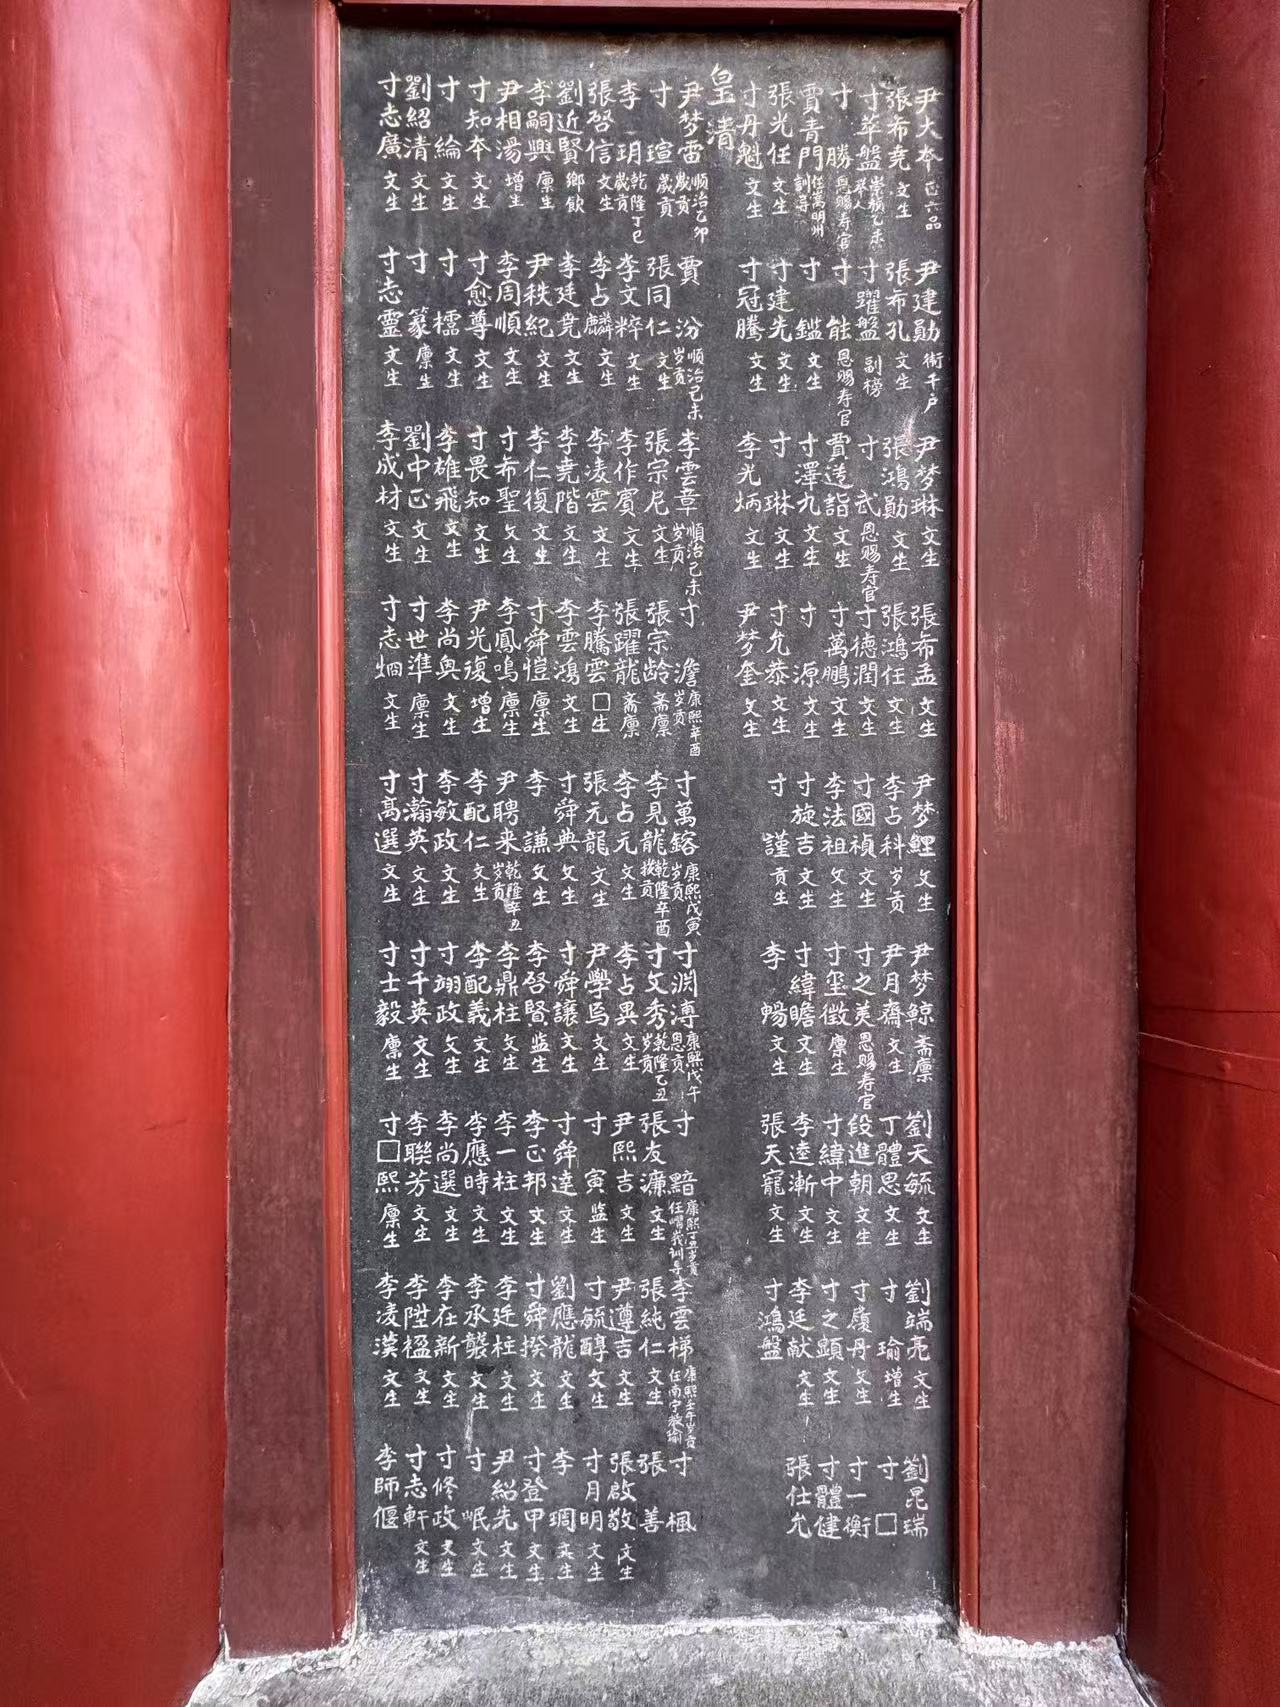 尹大本 正六品 尹建勛 衛千户 尹梦琳 文生 張希孟 文生 尹梦鯉 文生 尹梦鯨 斋廪 劉天毓 文生 劉端亮 文生 劉昆瑞
張布尭 文生 張布孔 文生 張鴻勛 文生 張鴻任 文生 李占科 岁贡 尹月齋 文生 丁體思 文生 寸瑜 增生 寸□
寸萃盤 崇禎乙未举人 寸躍盤 副榜 寸武 恩賜寿官 寸德潤 文生 寸國禎 文生 寸之美 恩賜寿官 段進朝 文生 寸履丹 文生 寸一衡
寸勝 恩賜寿官 寸能 恩賜寿官 賈逵詣 文生 寸萬鵬 文生 李法祖 文生 寸玺徵 廪生 寸緯中 文生 寸之顕 文生 寸體健
賈青門 任嵩明州訓导 寸鑑 文生 寸澤九 文生 寸源 文生 寸旋吉 文生 寸緯瞻 文生 李逵漸 文生 李廷献 文生 張仕允
張光任 文生 寸建先 文生 寸琳 文生 寸允恭 文生 寸謹 贡生 李暢 文生 張天寵 文生 寸鴻盤
寸丹魁 文生 寸冠騰 文生 李光炳 文生 尹梦奎 文生
皇清
尹梦雷 順治乙卯歲贡 賈汾 順治己未岁贡 李雲章 順治己未岁贡 寸澹 康熙辛酉岁贡 寸萬鎔 康熙戊寅岁贡 寸渊溥 康熙戊午恩贡 寸黯 康熙丁丑岁贡任嶍峩訓导 李雲梯 康熙壬午岁贡任南宁教諭 寸楓
寸瑄 歲贡 張同仁 文生 張宗尼 文生 張宗龄 斋廪 李見龍 乾隆辛酉拔贡 寸文秀 乾隆乙丑岁贡 張友濂 文生 張純仁 文生 張善
李玥 乾隆丁巳歲贡 李文粹 文生 李作賓 文生 張躍龍 斋廪 李占元 文生 李占異 文生 尹熙吉 文生 尹遵吉 文生 張啟敬 文生
張啓信 文生 李占麟 文生 李凌雲 文生 李騰雲 □生 張元龍 文生 尹學 文生 寸寅 监生 寸毓醇 文生 寸月明 文生
劉近賢 鄉飲 李廷尭 文生 李尭階 文生 李雲鴻 文生 寸舜典 文生 寸舜讓 文生 寸舜達 文生 劉應龍 文生 李琱 文生
李嗣興 廪生 尹秩紀 文生 李仁復 文生 寸舜愷 廪生 李謙 文生 李啓賢 监生 李正邦 文生 寸舜揆 文生 寸登甲 文生
尹相湯 增生 李周順 文生 寸希聖 文生 李鳳鳴 廪生 尹聘来 乾隆辛丑岁贡 李鼎柱 文生 李一柱 文生 李廷柱 文生 尹紹先 文生
寸知本 文生 寸愈尊 文生 寸畏知 文生 尹光復 增生 李配仁 文生 李配義 文生 李應時 文生 李承襲 文生 寸岷 文生
寸綸 文生 寸櫺 文生 李雄飛 文生 李尚奥 文生 李敏政 文生 寸翊政 文生 李尚選 文生 李在新 文生 寸修政 文生
劉紹清 文生 寸篆 廪生 劉中正 文生 寸世準 廪生 寸瀚英 文生 寸千英 文生 李聯芳 文生 李陞楹 文生 寸志軒 文生
寸志廣 文生 寸志靈 文生 李成材 文生 寸志烱 文生 寸高選 文生 寸士毅 廪生 寸□熙 廪生 李凌漢 文生 李師偃